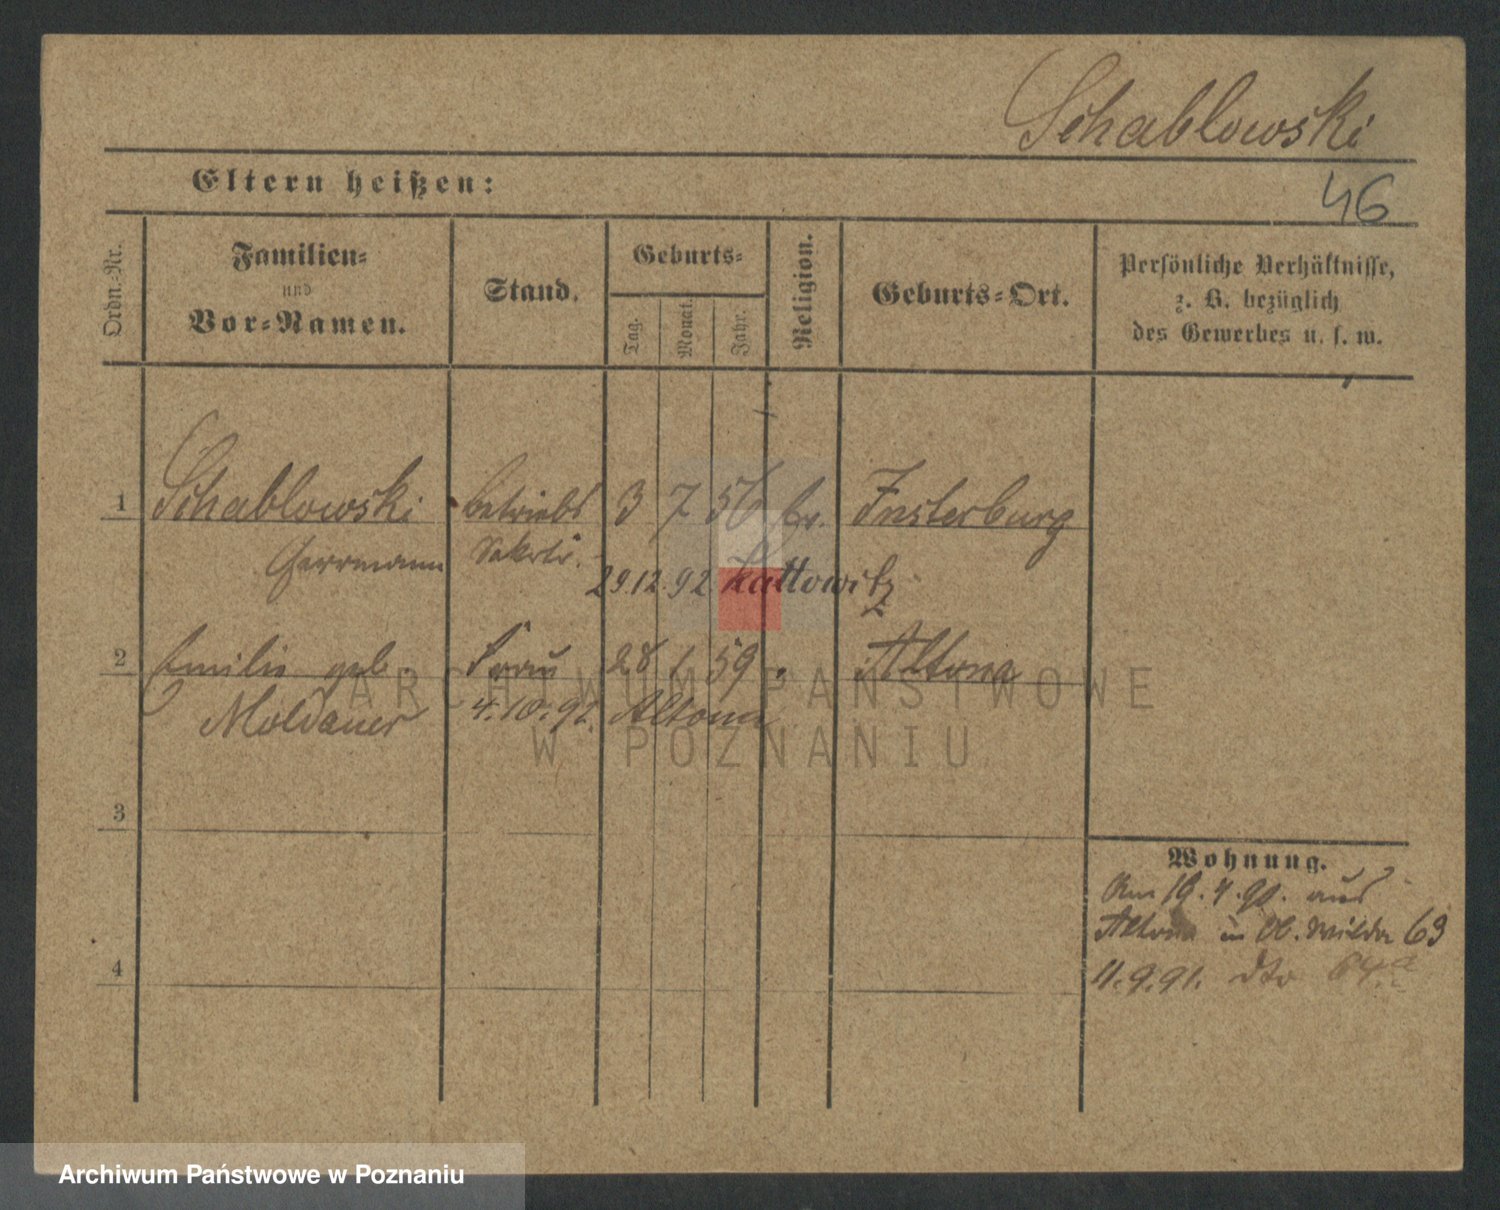 Schablowski
Eltern heißen:
46
Ordn.-Nr.
Familien-
und
Vor-Namen.
Stand.
Geburts-
Tag.
Monat.
Jahr.
Religion.
Geburts-Ort.
Persönliche Verhältnisse,
z. B. bezüglich
des Gewerbes u. s. w.
1 Schablowski Betriebs 3 7 56 Insterburg
Herrmann Sekretär.
29.12.92 Kattowitz
2 Emilie geb. Frau 28 1 59 " Altona
Moldauer 4.10.92. Altona
3
4
Wohnung.
Am 19.4.90. aus
Altona in Ob. Wilda 69
11.9.91. dto 64a
ARCHIWUM PAŃSTWOWE
W POZNANIU
Archiwum Państwowe w Poznaniu